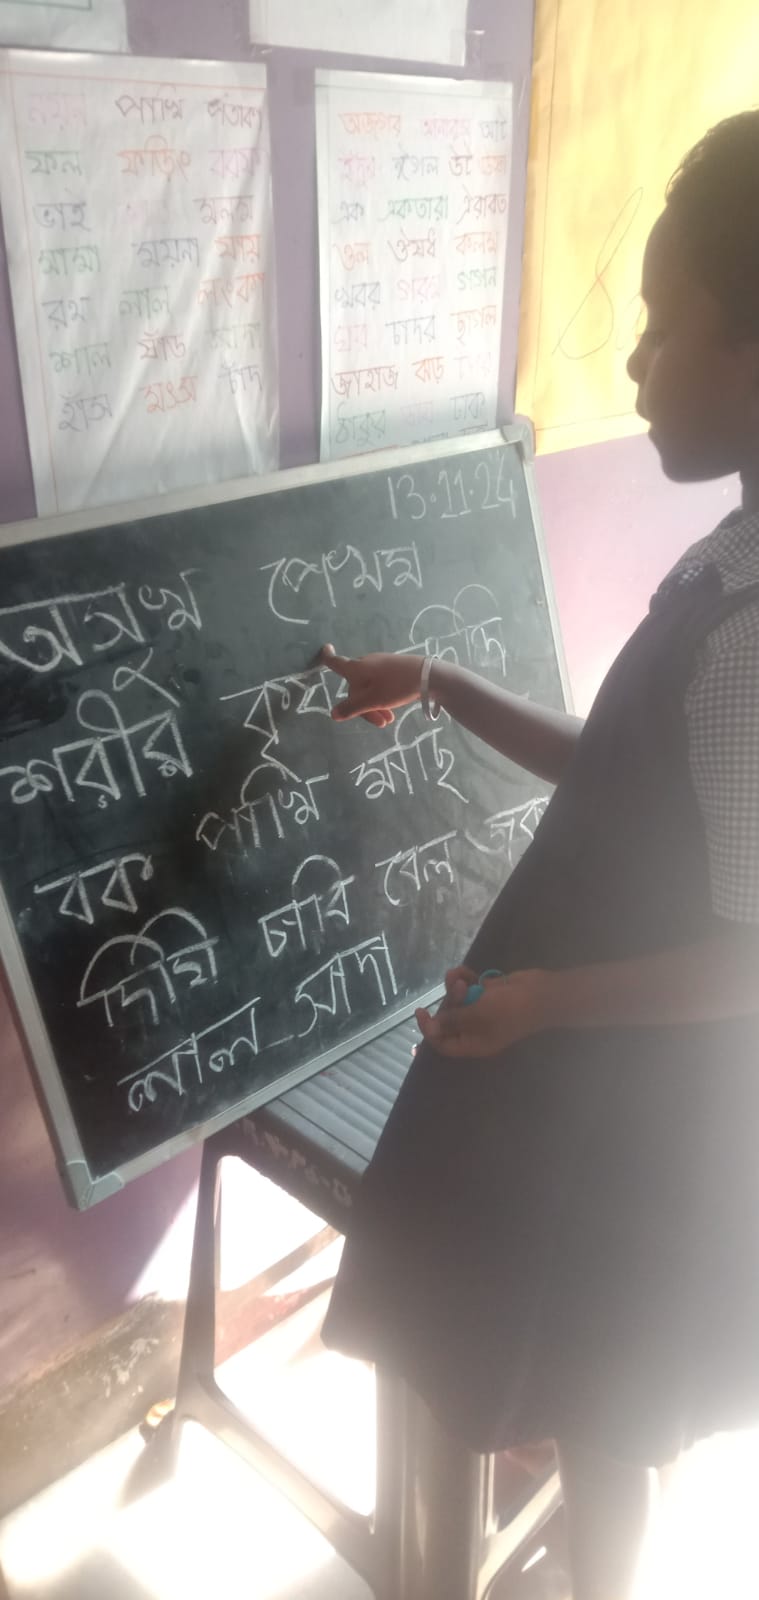 নয়ন পাখি পতাকা
ফল ফড়িং বরফ
ভাই মলম
মামা ময়না যায়
রথ লাল লংকা
শাল ষাঁড় সাদা
হাঁস মৎস চাঁদ
অজগর আনারস আট
ইঁদুর ঈগল উট ঊষা
এক একতারা ঐরাবত
ওল ঔষধ কলম
খবর গরল গগন
ঘর চাদর ছাগল
জাহাজ ঝড়
ঠাকুর ঢাক
13.11.24
অসুখ পেখম
শরীর কৃষক দিদি
বক পাখি মাছি
দিঘি চাবি বেল
লাল সাদা